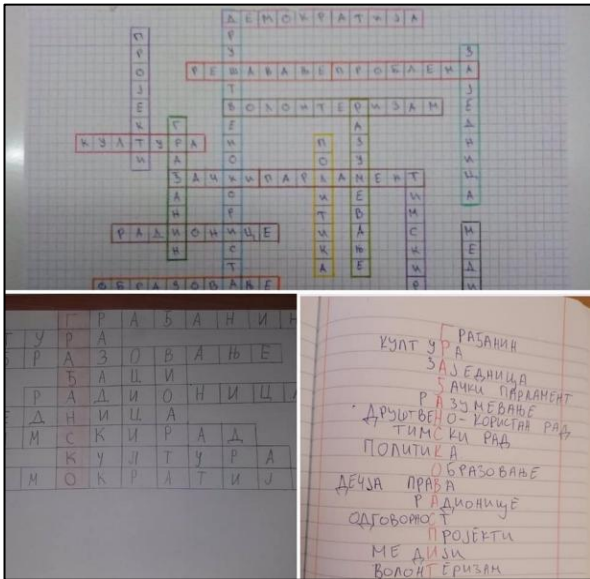 ДЕМОКРАТИЈА
ПРОЈЕКТИ
РЕШАВАЊЕПРОБЛЕМА
ЗАЈЕДНИЦА
ВОЛОНТЕРИЗАМ
КУЛТУРА
ГРАЂАНИН
ПОЛИТИКА
РАЗУМЕВАЊЕ
ЂАЧКИПАРЛАМЕНТ
ДРУШТВЕНОКОРИСТА
ТИМСКИР
РАДИОНИЦЕ
МЕДИ
ОБРАЗОВАЊЕ
ГРАЂАНИН
ТУРА
БРАЗОВАЊЕ
ЂАЦИ
РАДИОНИЦА
ЕДНИЦА
МСКИРАД
КУЛТУРА
МОКРАТИЈ
ГРАЂАНИН
КУЛТУРА
ЗАЈЕДНИЦА
ЂАЧКИ ПАРЛАМЕНТ
РАЗУМЕВАЊЕ
ДРУШТВЕНО-КОРИСТАН РАД
ТИМСКИ РАД
ПОЛИТИКА
ОБРАЗОВАЊЕ
ДЕЧЈА ПРАВА
РАДИОНИЦЕ
ОДГОВОРНОСТ
ПРОЈЕКТИ
МЕДИЈИ
ВОЛОНТЕРИЗАМ